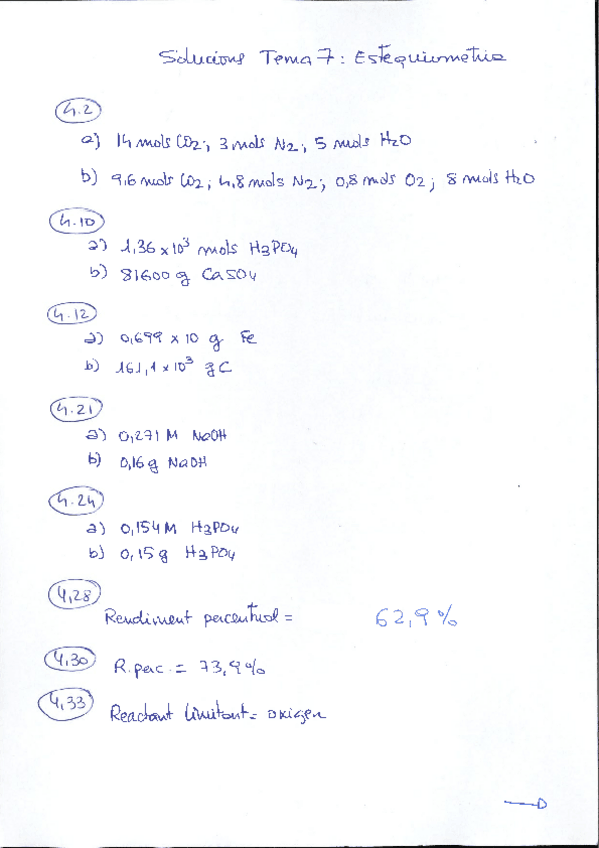 Solucions Tema 7: Estequiometria
4.2
a) 14 mols CO2; 3 mols N2; 5 mols H2O
b) 9,6 mols CO2; 4,8 mols N2; 0,8 mols O2; 8 mols H2O
4.10
a) 1,36 x 10³ mols H3PO4
b) 81600 g CaSO4
4.12
a) 0,699 x 10 g Fe
b) 161,1 x 10³ g C
4.21
a) 0,271 M NaOH
b) 0,16 g NaOH
4.24
a) 0,154 M H3PO4
b) 0,15 g H3PO4
4,28
Rendiment percentual = 62,9%
4,30
R. perc. = 73,9%
4,33
Reactant limitant = oxigen